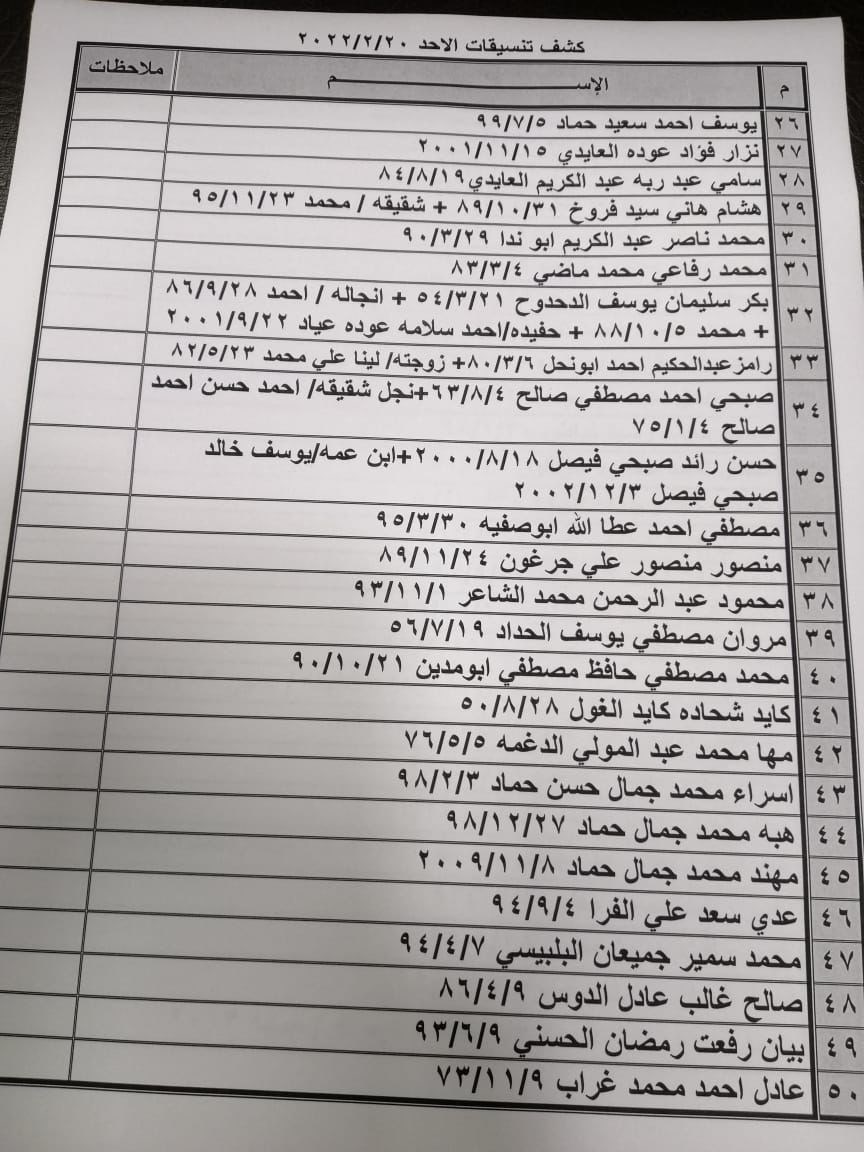 كشف تنسيقات الاحد ٢٠٢٢/٢/٢٠
م الإســـــــــم ملاحظات
٢٦ يوسف احمد سعيد حماد ٩٩/٧/٥
٢٧ نزار فؤاد عوده العايدي ٢٠٠١/١١/١٥
٢٨ سامي عبد ربه عبد الكريم العايدي ٨٤/٨/١٩
٢٩ هشام هاني سيد فروخ ٨٩/١٠/٣١ + شقيقه / محمد ٩٥/١١/٢٣
٣٠ محمد ناصر عبد الكريم ابو ندا ٩٠/٣/٢٩
٣١ محمد رفاعي محمد ماضي ٨٣/٣/٤
٣٢ بكر سليمان يوسف الدحدوح ٥٤/٣/٢١ + انجاله / احمد ٨٦/٩/٢٨
+ محمد ٨٨/١٠/٥ + حفيده/احمد سلامه عوده عياد ٢٠٠١/٩/٢٢
٣٣ رامز عبدالحكيم احمد ابونحل ٨٠/٣/٦+ زوجته/ لينا علي محمد ٨٢/٥/٢٣
٣٤ صبحي احمد مصطفي صالح ٦٣/٨/٤+نجل شقيقه/ احمد حسن احمد
صالح ٧٥/١/٤
٣٥ حسن رائد صبحي فيصل ٢٠٠٠/٨/١٨+ابن عمه/يوسف خالد
صبحي فيصل ٢٠٠٢/١٢/٣
٣٦ مصطفي احمد عطا الله ابوصفيه ٩٥/٣/٣٠
٣٧ منصور منصور علي جرغون ٨٩/١١/٢٤
٣٨ محمود عبد الرحمن محمد الشاعر ٩٣/١١/١
٣٩ مروان مصطفي يوسف الحداد ٥٦/٧/١٩
٤٠ محمد مصطفي حافظ مصطفي ابومدين ٩٠/١٠/٢١
٤١ كايد شحاده كايد الغول ٥٠/٨/٢٨
٤٢ مها محمد عبد المولي الدغمه ٧٦/٥/٥
٤٣ اسراء محمد جمال حسن حماد ٩٨/٢/٣
٤٤ هبه محمد جمال حماد ٩٨/١٢/٢٧
٤٥ مهند محمد جمال حماد ٢٠٠٩/١١/٨
٤٦ عدي سعد علي الفرا ٩٤/٩/٤
٤٧ محمد سمير جميعان البلبيسي ٩٤/٤/٧
٤٨ صالح غالب عادل الدوس ٨٦/٤/٩
٤٩ بيان رفعت رمضان الحسني ٩٣/٦/٩
٥٠ عادل احمد محمد غراب ٧٣/١١/٩